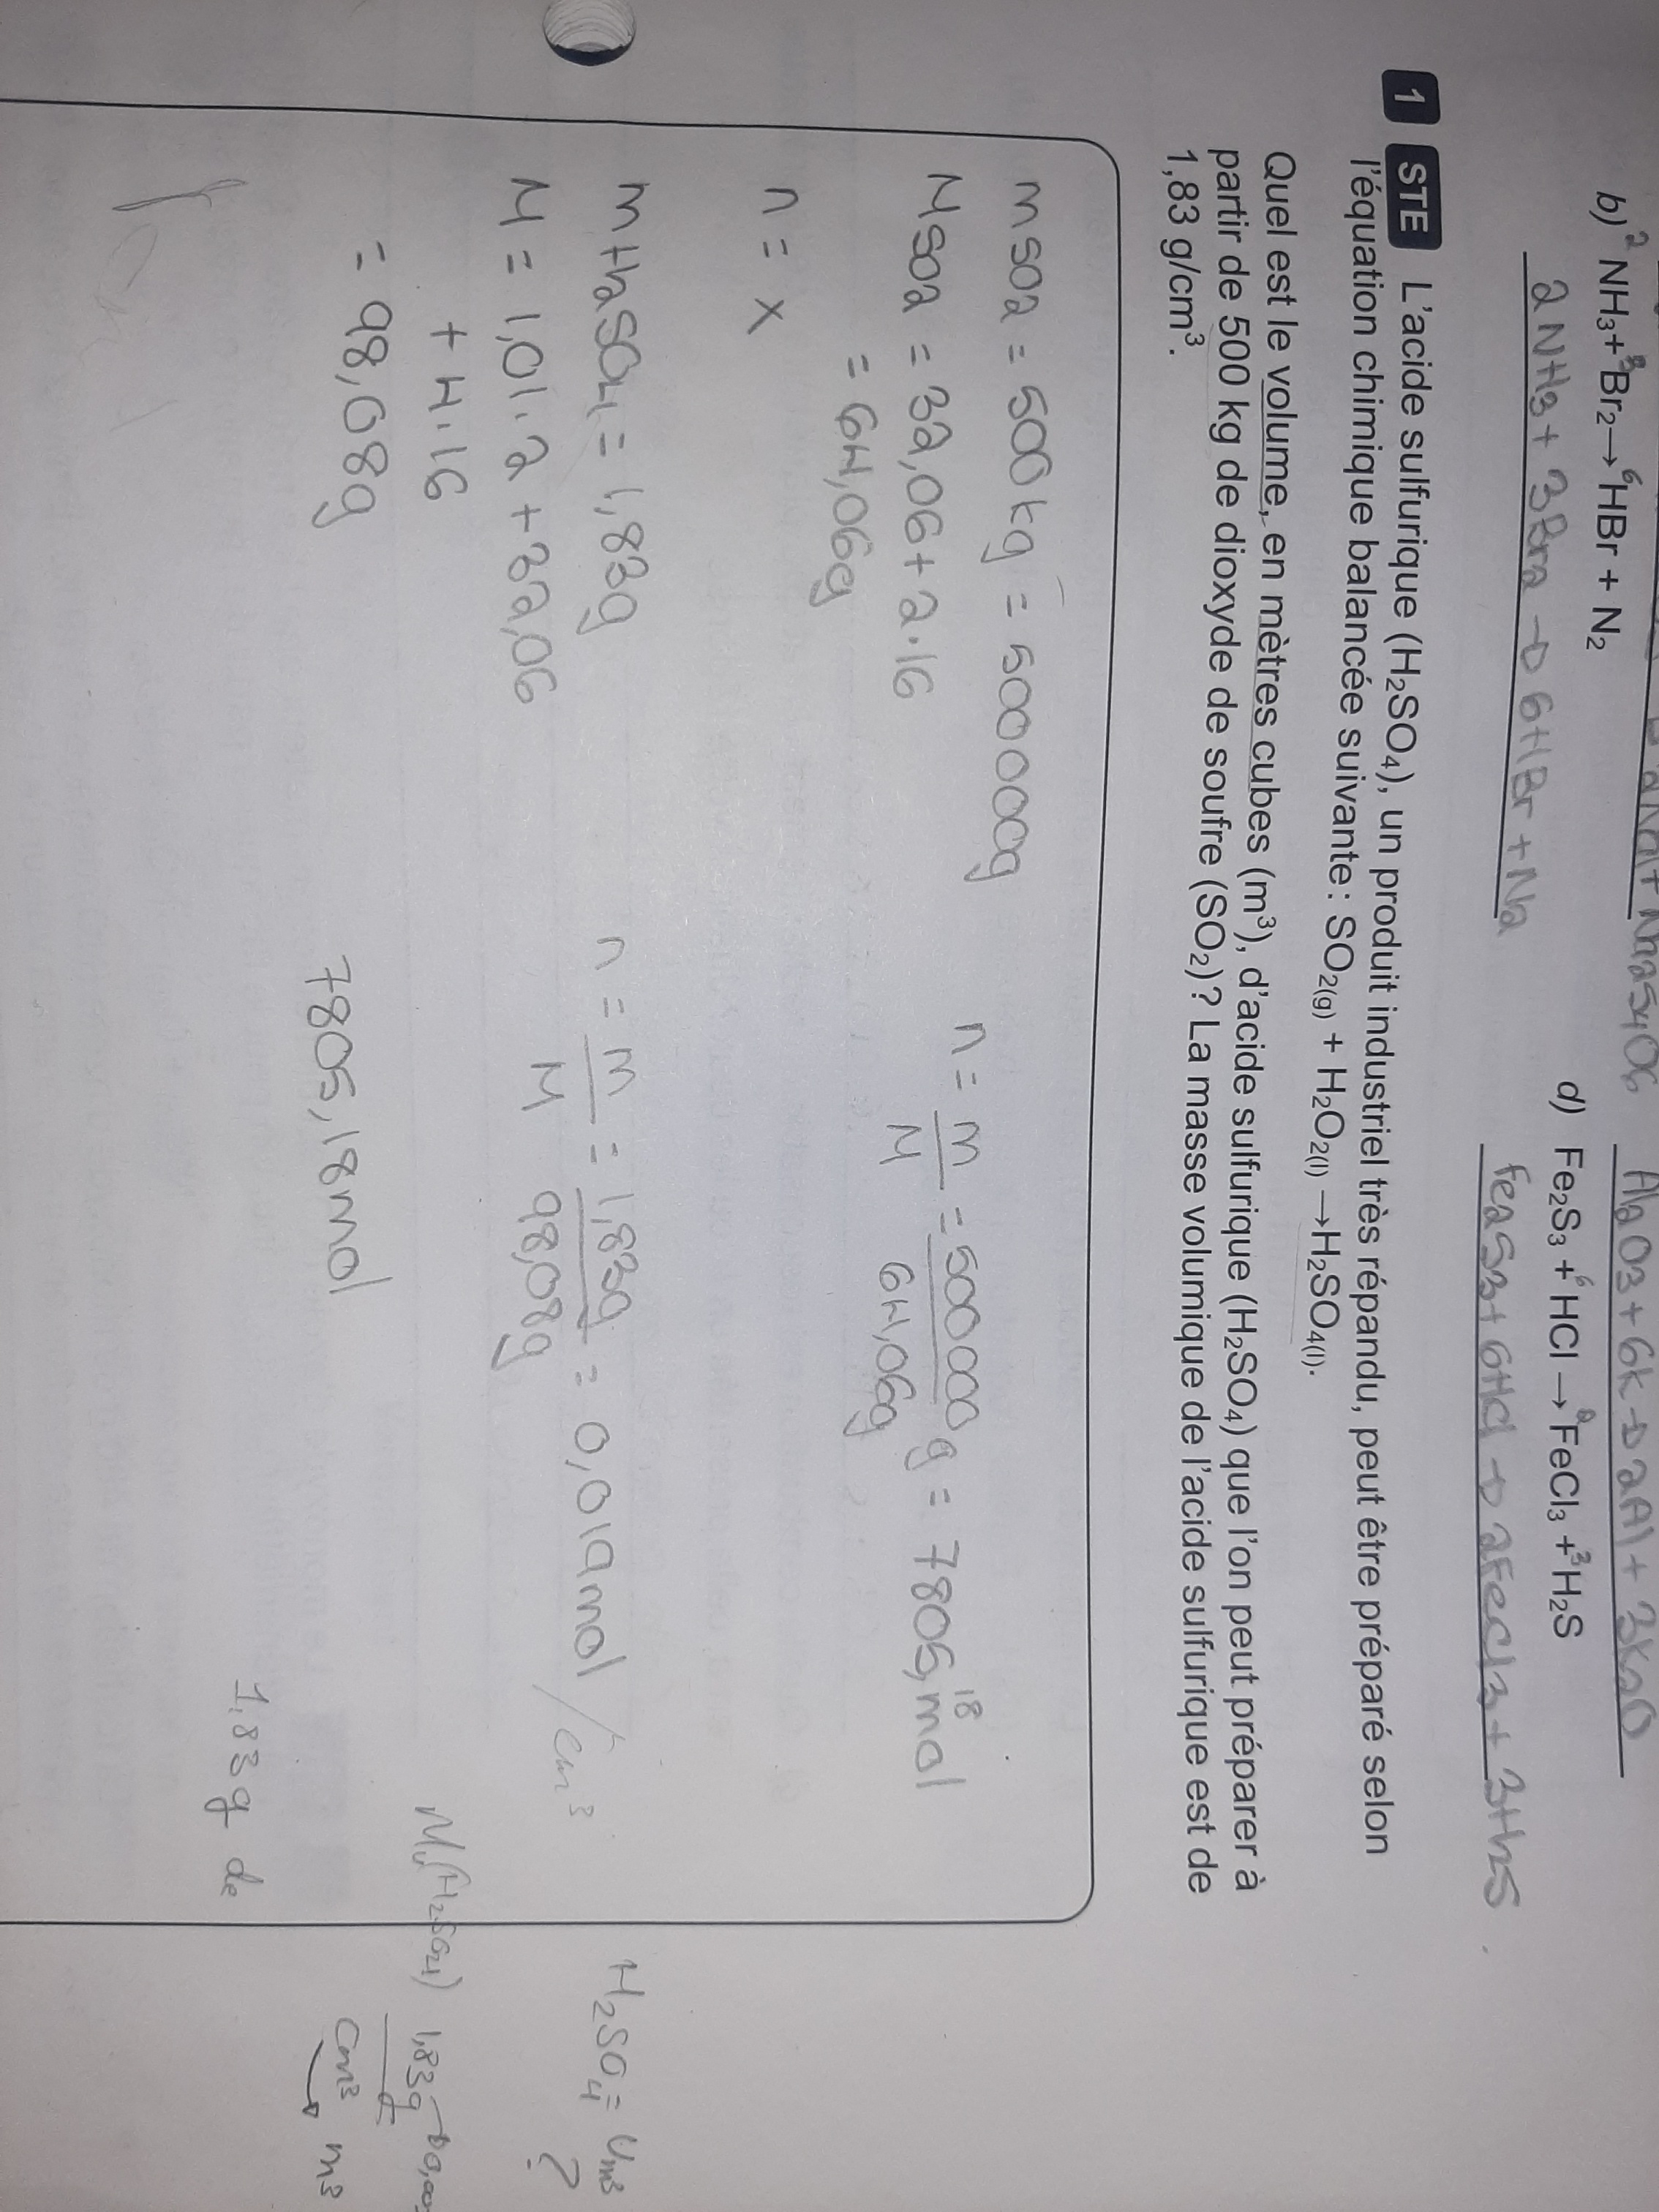 b) 2 NH3 + 3 Br2 → 6 HBr + N2
2NH3 + 3Br2 → 6HBr + N2
Al2O3 + 6K → 2Al + 3K2O
d) Fe2S3 + 6 HCl → 2 FeCl3 + 3 H2S
Fe2S3 + 6HCl → 2FeCl3 + 3H2S
1 STE L'acide sulfurique (H2SO4), un produit industriel très répandu, peut être préparé selon
l'équation chimique balancée suivante : SO2(g) + H2O2(l) → H2SO4(l).
Quel est le volume, en mètres cubes (m³), d'acide sulfurique (H2SO4) que l'on peut préparer à
partir de 500 kg de dioxyde de soufre (SO2)? La masse volumique de l'acide sulfurique est de
1,83 g/cm³.
m SO2 = 500 kg = 500000g
M SO2 = 32,06 + 2·16
= 64,06g
n = x
n = m/M = 500000g/64,06g = 7805,18 mol
m H2SO4 = 1,83g
M = 1,01·2 + 32,06
+ 4·16
= 98,08g
n = m/M = 1,83g/98,08g = 0,019mol /cm³
7805,18mol
H2SO4 = Vm³
?
1,83g
cm³ → m³
1,83 g de